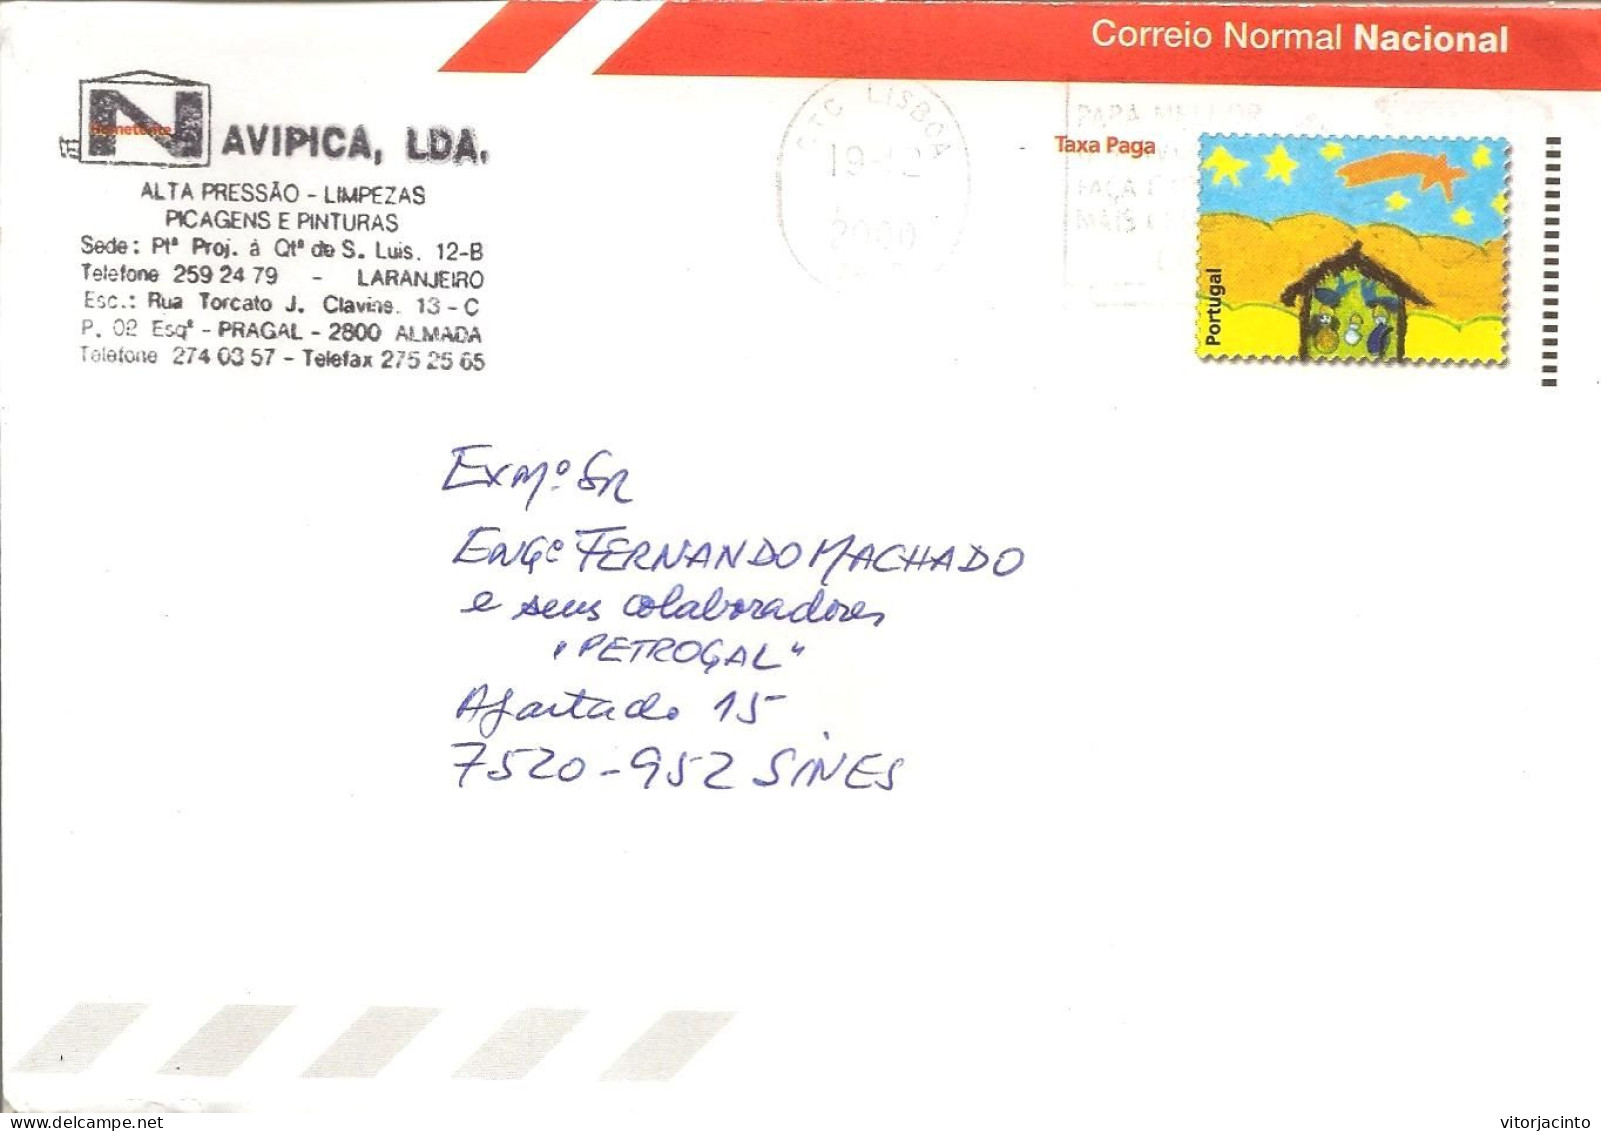 Correio Normal Nacional
NAVIPICA, LDA.
ALTA PRESSÃO - LIMPEZAS
PICAGENS E PINTURAS
Sede: Ptª Proj. à Qtª de S. Luis. 12-B
Telefone 259 24 79 - LARANJEIRO
Esc.: Rua Torcato J. Clavine. 13 - C
P. 02 Esqº - PRAGAL - 2800 ALMADA
Telefone 274 03 57 - Telefax 275 25 65
CTC LISBOA
19-12
2000
PARA MELHOR
FAÇA
MAIS
Taxa Paga
Portugal
Exmº. Sr
Engº FERNANDO MACHADO
e seus colaboradores
"PETROGAL"
Apartado 15
7520-952 SINES
vitorjacinto